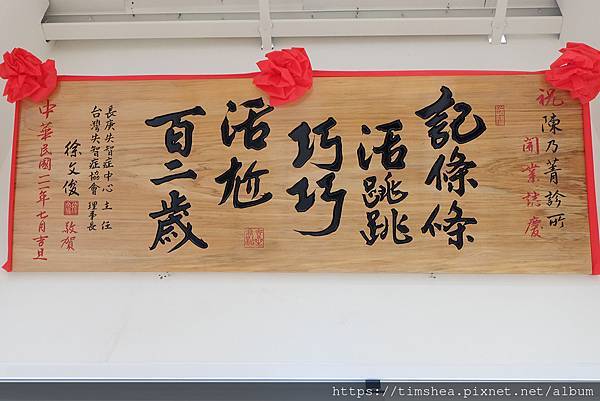 祝
陳乃菁診所
開業誌慶
記條條
活跳跳
巧巧
活尬
百二歲
長庚失智症中心 主任
台灣失智症協會 理事長
徐文俊 敬賀
中華民國一一一年七月吉旦
https://timshea.pixnet.net/album